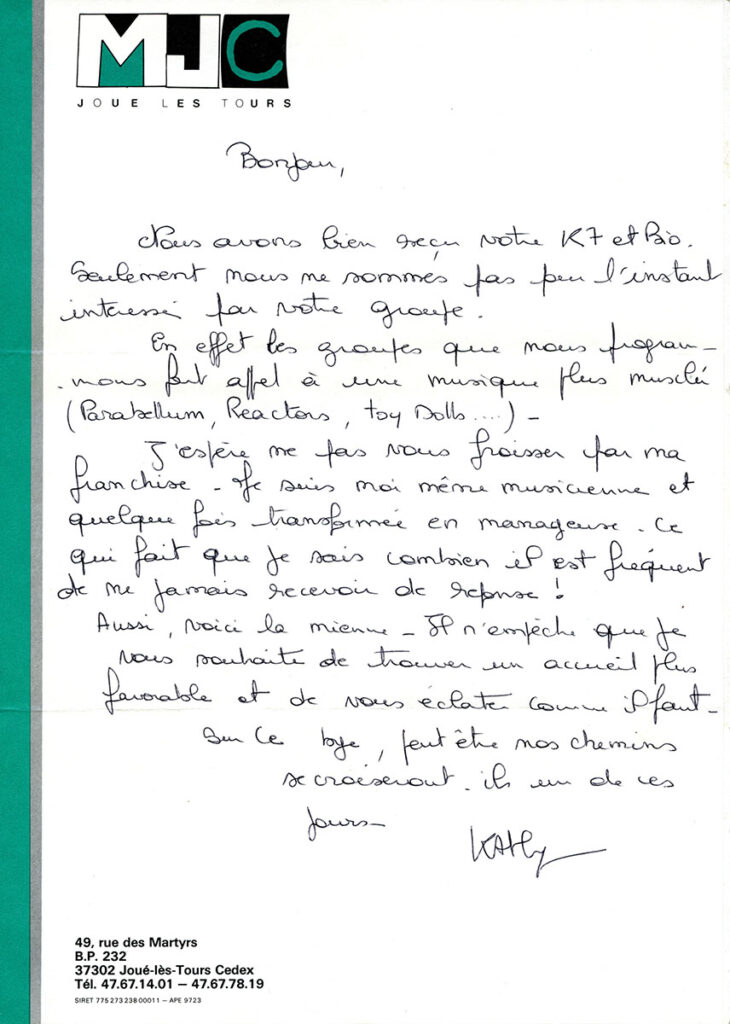 MJC
JOUE LES TOURS
Bonjour,
Nous avons bien reçu votre K7 et Bio.
Seulement nous ne sommes pas pour l'instant
interessé par votre groupe.
En effet les groupes que nous program-
-mons font appel à une musique plus musclée
(Parabellum, Reactors, toy Dolls....) -
J'espère ne pas vous froisser par ma
franchise - Je suis moi même musicienne et
quelque fois transformée en manageuse. Ce
qui fait que je sais combien il est fréquent
de ne jamais recevoir de reponse !
Aussi, voici la mienne - Il n'empèche que je
vous souhaite de trouver un accueil plus
favorable et de vous éclater comme il faut -
Sur Ce bye, peut être nos chemins
se croiseront-ils un de ces
jours -
KAthy
49, rue des Martyrs
B.P. 232
37302 Joué-lès-Tours Cedex
Tél. 47.67.14.01 – 47.67.78.19
SIRET 775 273 238 00011 – APE 9723